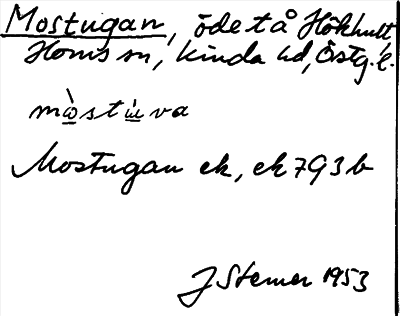 Mostugan, ödet å Hökhult
Horns sn, Kinda hd, Östg. l.
mòstùva
Mostugan ek, ek 793 b
J Sterner 1953